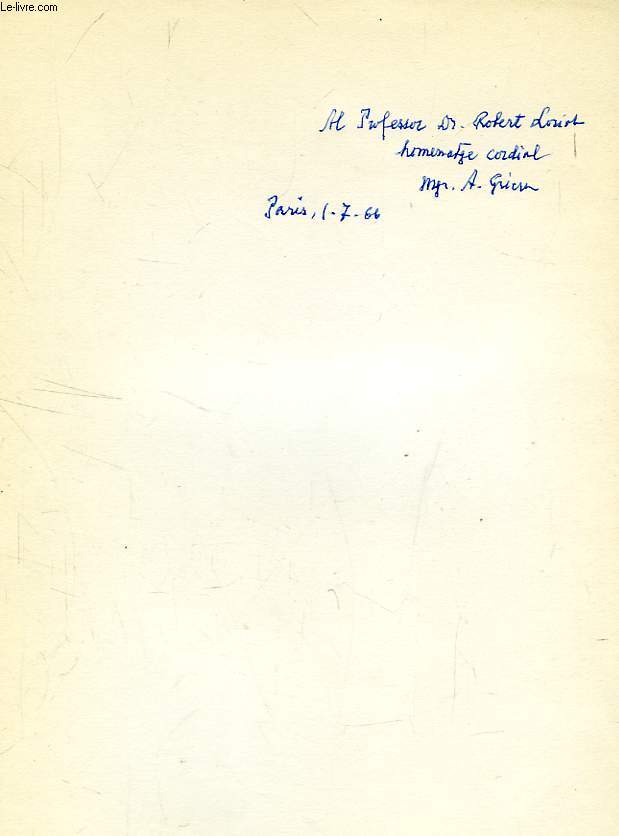 Le-livre.com
Al Professor Dr. Robert Loriot
homenatge cordial
Mgr. A. Griera
Paris, 1-7-66